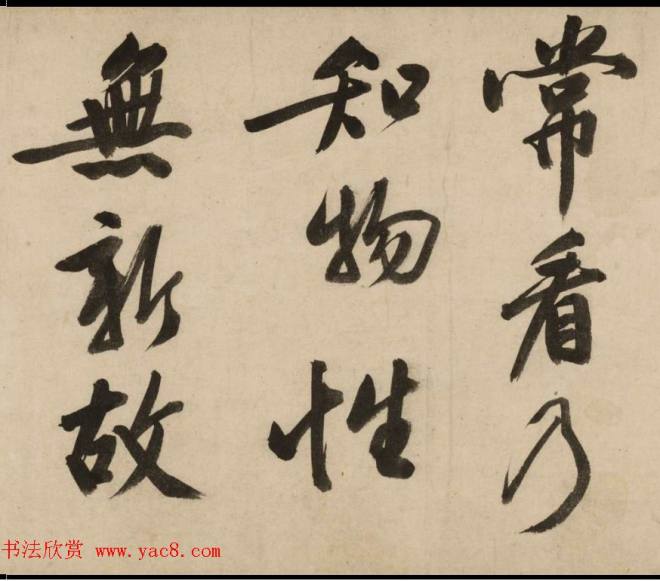 常看乃
知物性
無新故
书法欣赏 www.yac8.com